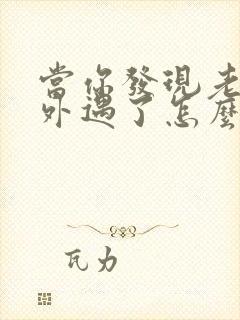 當你發現老
外遇了怎麼
瓦力